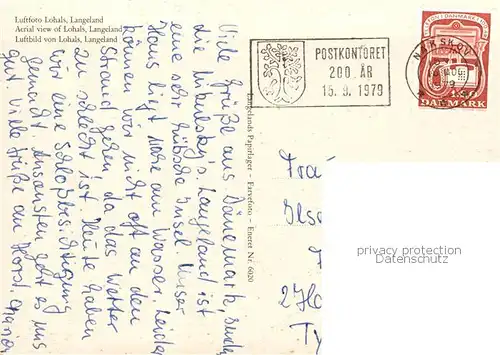 Luftfoto Lohals, Langeland
Aerial view of Lohals, Langeland
Luftbild von Lohals, Langeland
POSTKONTORET
200 ÅR
15. 9. 1979
NAKSKOV
DANMARK
Viele Grüße aus Dänemark
Langeland ist
eine sehr hübsche Insel. Unser
Haus liegt nahe am Wasser. Leider
können wir nicht oft an den
Strand gehen, da das Wetter
zu schlecht ist. Heute haben
wir eine Schloßbesichtigung
gemacht. Ansonsten geht es uns
gut. Viele Grüße an Horst
Langelands Papirlager - Farvefoto - Eneret Nr. 6020
privacy protection
Datenschutz